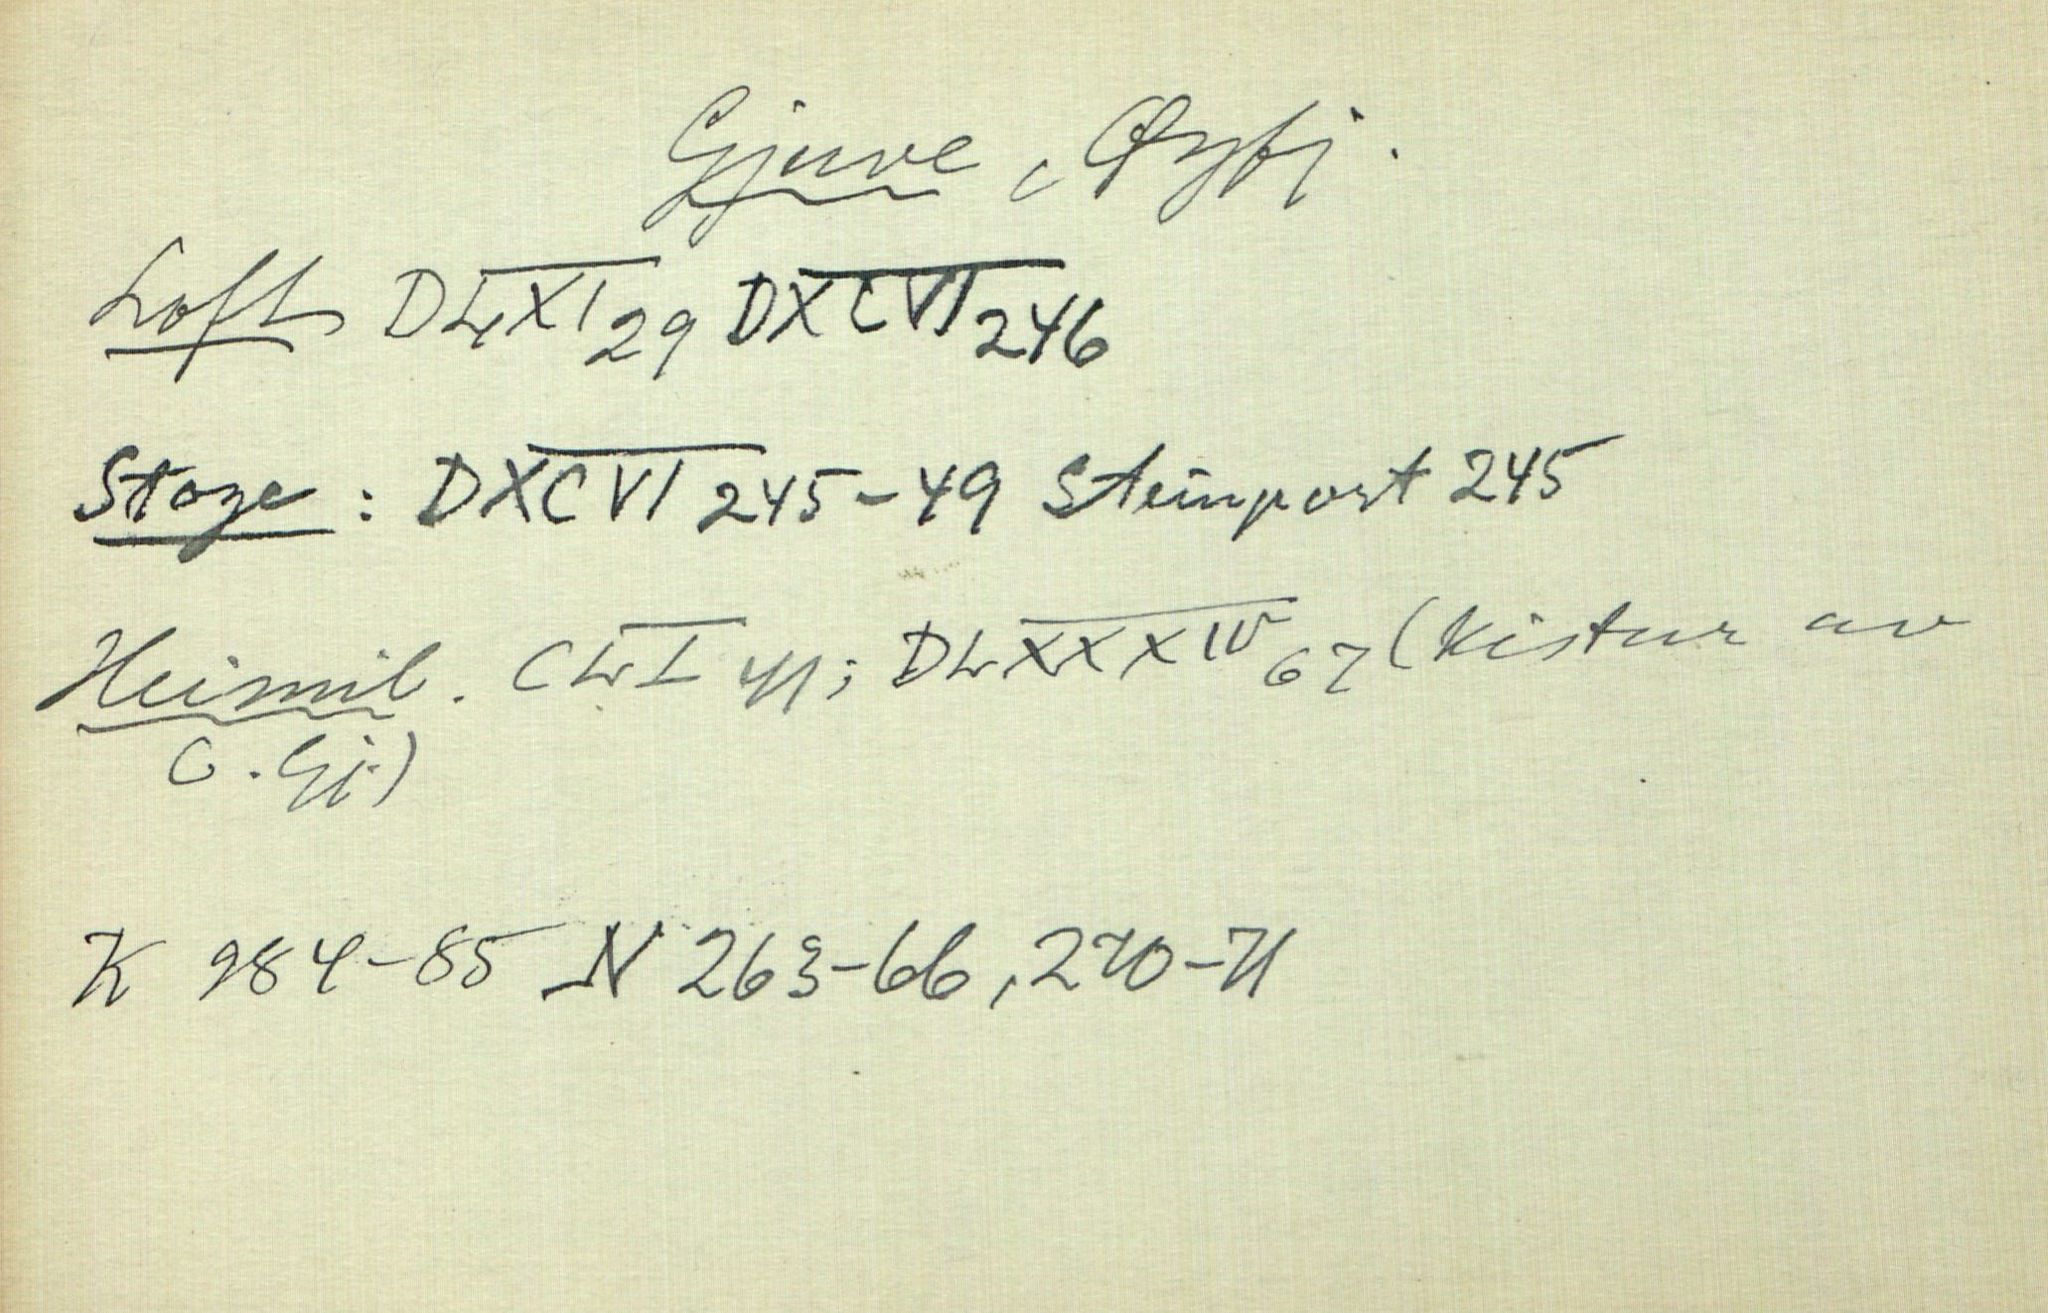 Gjuve, Øyfj.
Loft DLXI 29 DXCVI 246
Stoge: DXCVI 245-49 Steinport 245
Heimil. CLI 41; DLXXXIV 67 (Kistur av
O. Gj.)
K 984-85 N 263-66, 270-71